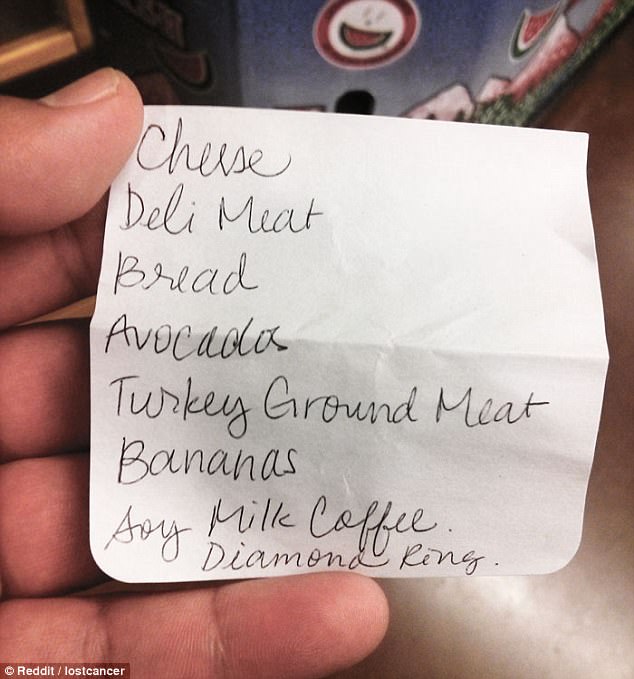 Cheese
Deli Meat
Bread
Avocados
Turkey Ground Meat
Bananas
Soy Milk Coffee.
Diamond Ring.
© Reddit / lostcancer